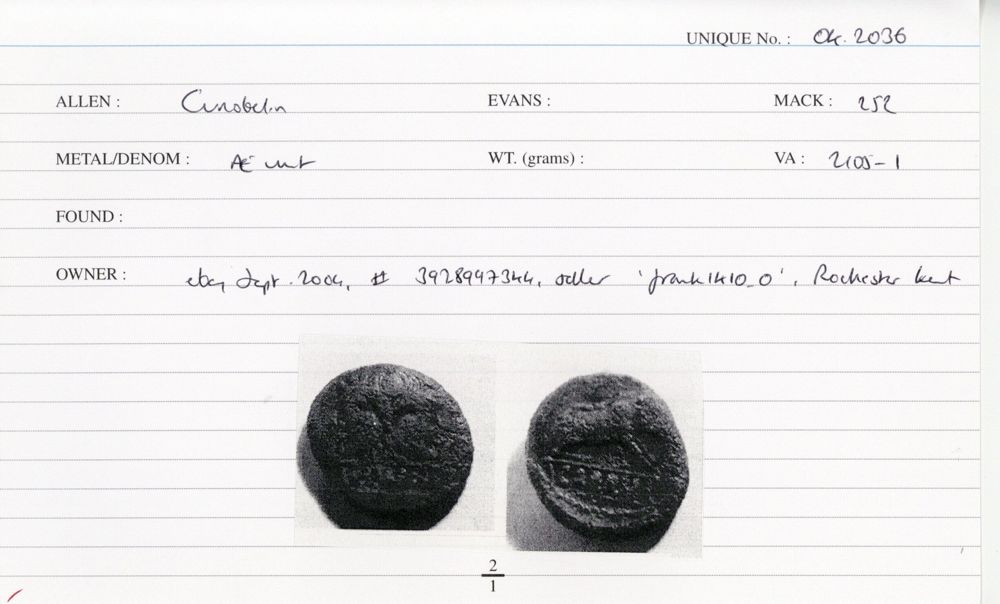 UNIQUE No. : 04. 2036
ALLEN : Cunobelin EVANS : MACK : 252
METAL/DENOM : Æ unit WT. (grams) : VA : 2105-1
FOUND :
OWNER : ebay Sept. 2004, # 3928997344, seller 'frank1410_0', Rochester Kent
2
1